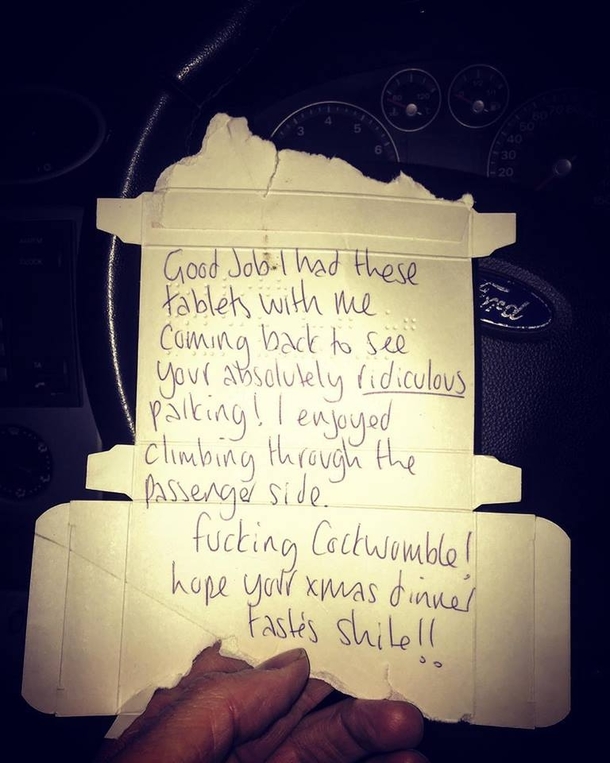 3
4
5
6
40
30
20
Good Job I had these
tablets with me
Coming back to see
your absolutely ridiculous
parking! I enjoyed
climbing through the
passenger side.
fucking Cockwomble!
hope your xmas dinner
tastes shite!!
Ford